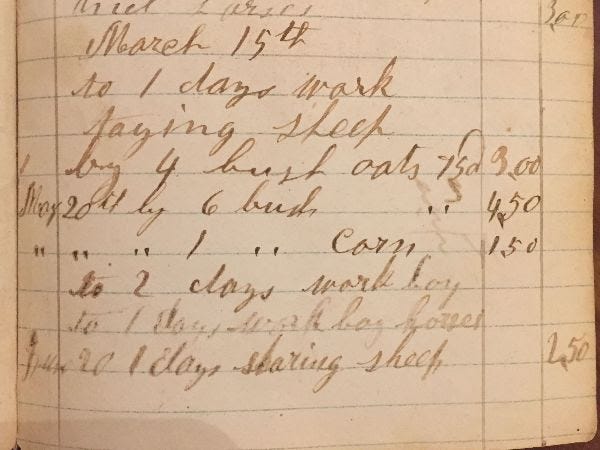 horses 3,00
March 15th
to 1 days work
taying sheep
1 by 4 bush oats 75c 3,00
May 20th by 6 bush " 4,50
" " " 1 " corn 1,50
to 2 days work boy
to 1 days work boy horses
June 20 1 days sharing sheep 2,50